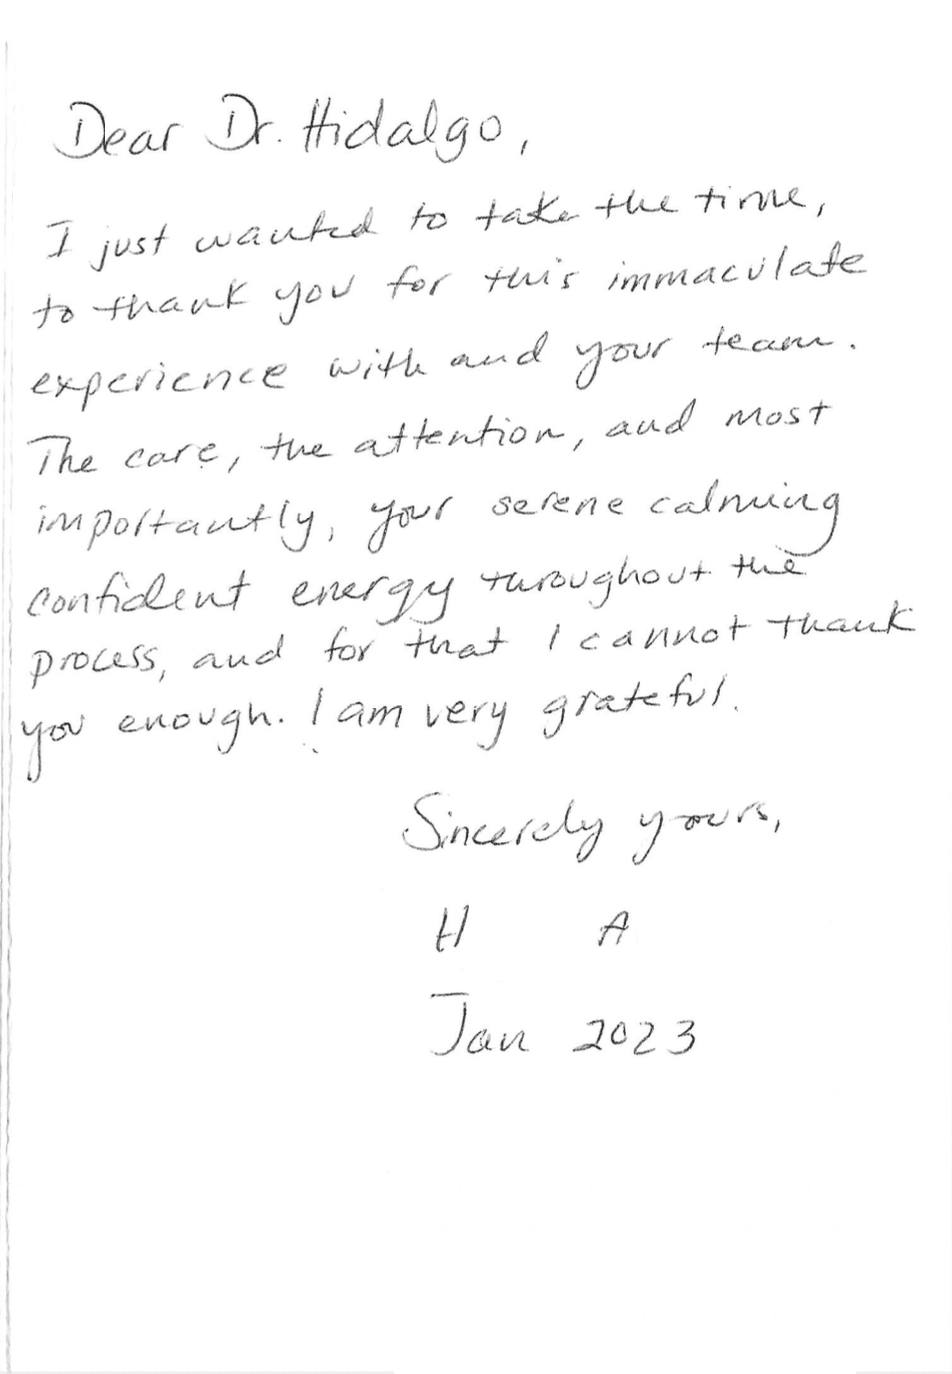 Dear Dr. Hidalgo,
I just wanted to take the time,
to thank you for this immaculate
experience with and your team.
The care, the attention, and most
importantly, your serene calming
confident energy throughout the
process, and for that I cannot thank
you enough. I am very grateful.
Sincerely yours,
H A
Jan 2023